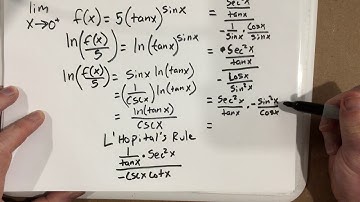 lim
x→0⁺
f(x) = 5(tanx)^sinx
ln(f(x)/5) = ln(tanx)^sinx
ln(f(x)/5) = sinx ln(tanx)
= (1/cscx) ln(tanx)
= ln(tanx)/cscx
L'Hopital's Rule
(1/tanx · sec²x)/(-cscx cotx)
= (sec²x/tanx)/(-1/sinx · cosx/sinx)
= (sec²x/tanx)/(-cosx/sin²x)
= sec²x/tanx · -sin²x/cosx
=